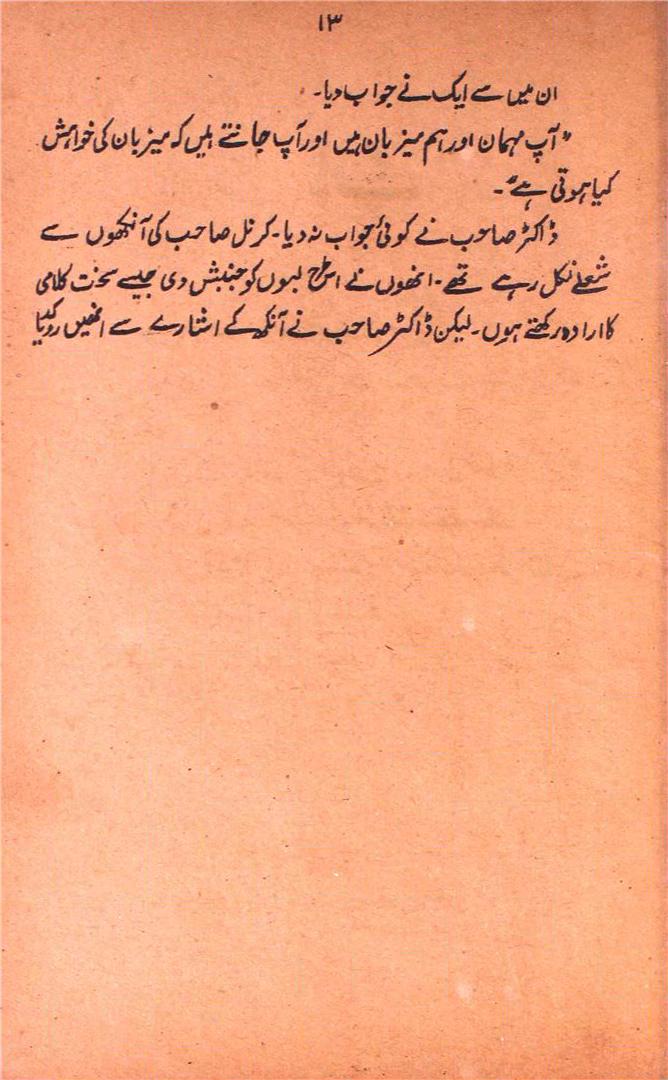 ۱۳
ان میں سے ایک نے جواب دیا۔
"آپ مہمان اور ہم میزبان ہیں اور آپ جانتے ہیں کہ میزبان کی خواہش
کیا ہوتی ہے"۔
ڈاکٹر صاحب نے کوئی جواب نہ دیا۔ کرنل صاحب کی آنکھوں سے
شعلے نکل رہے تھے۔ انھوں نے اسطرح لبوں کو جنبش دی جیسے سخت کلامی
کا ارادہ رکھتے ہوں۔ لیکن ڈاکٹر صاحب نے آنکھ کے اشارے سے انھیں روکدیا